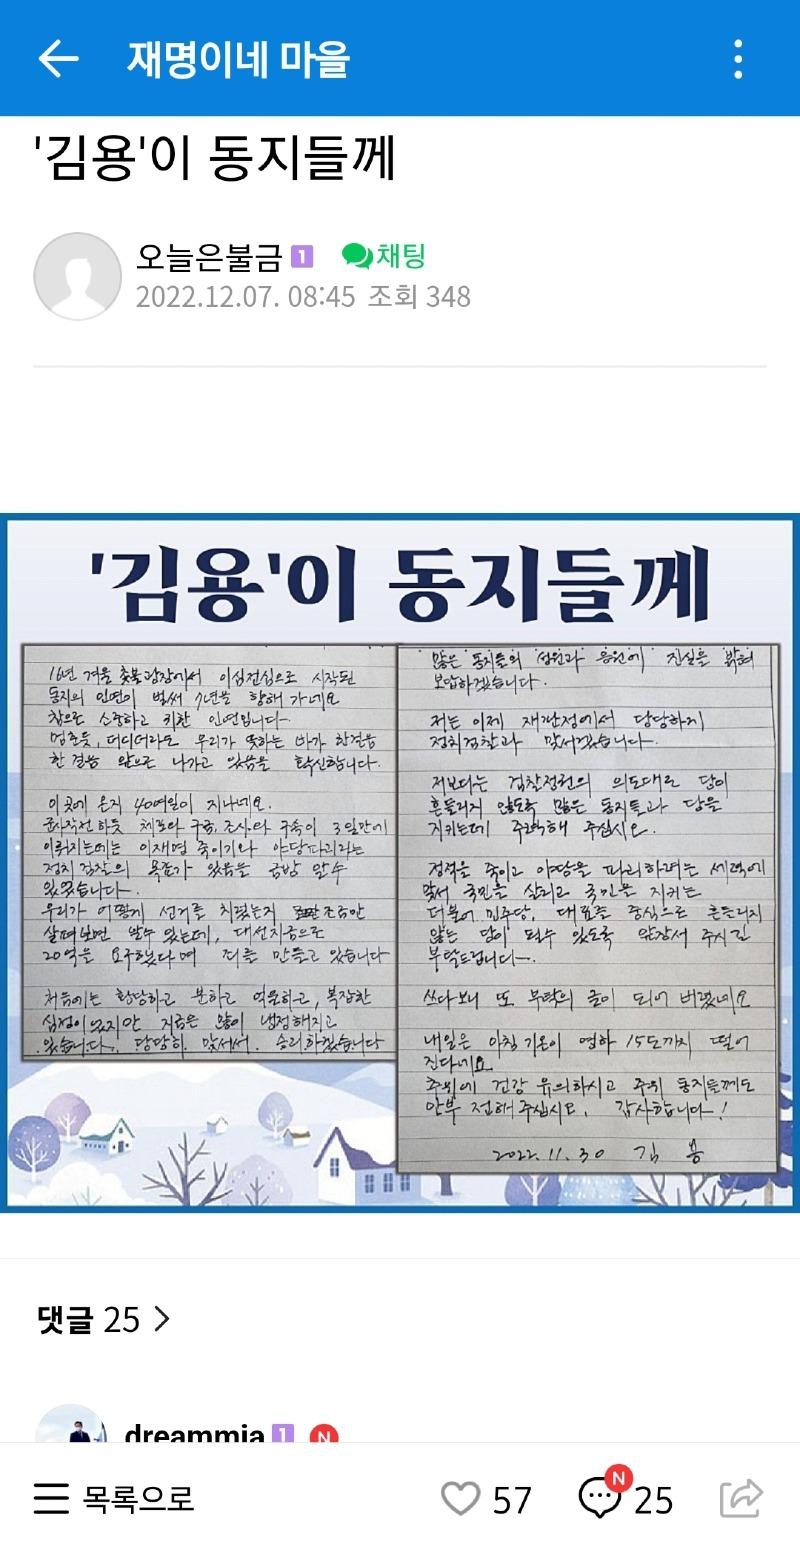 재명이네 마을
'김용'이 동지들께
오늘은불금 1 채팅
2022.12.07. 08:45 조회 348
'김용'이 동지들께
16년 겨울 촛불광장에서 이심전심으로 시작된
동지의 인연이 벌써 7년을 향해 가네요
참으로 소중하고 귀한 인연입니다
멈춘듯, 더디더라도 우리가 뜻하는 바가 한걸음
한 걸음 앞으로 나가고 있음을 확신합니다.
이곳에 온지 40여일이 지나네요.
군사작전 하듯 체포와 구금, 조사와 구속이 3일만에
이뤄지는데는 이재명 죽이기와 야당파괴라는
정치 검찰의 목표가 있음을 금방 알수
있었습니다.
우리가 어떻게 선거를 치렀는지 조금만
살펴보면 알수 있는데, 대선자금으로
20억을 요구했다며 죄를 만들고 있습니다
처음에는 황당하고 분하고 억울하고, 복잡한
심정이었지만 지금은 많이 냉정해지고
있습니다. 당당히 맞서서 승리하겠습니다
많은 동지들의 성원과 응원에 진실을 밝혀
보답하겠습니다.
저는 이제 재판정에서 당당하게
정치검찰과 맞서겠습니다.
저보다는 검찰정권의 의도대로 당이
흔들리지 않도록 많은 동지들과 당을
지키는데 주력해 주십시오.
정적을 죽이고 야당을 파괴하려는 세력에
맞서 국민을 살리고 국민을 지키는
더불어 민주당, 대표를 중심으로 흔들리지
않는 당이 될수 있도록 앞장서 주시길
부탁드립니다.
쓰다보니 또 부탁의 글이 되어 버렸네요
내일은 아침 기온이 영하 15도까지 떨어
진다네요
추위에 건강 유의하시고 주위 동지들께도
안부 전해주십시요. 감사합니다!
2022. 11. 30 김 용
댓글 25 >
dreammia 1 N
목록으로 57 N 25